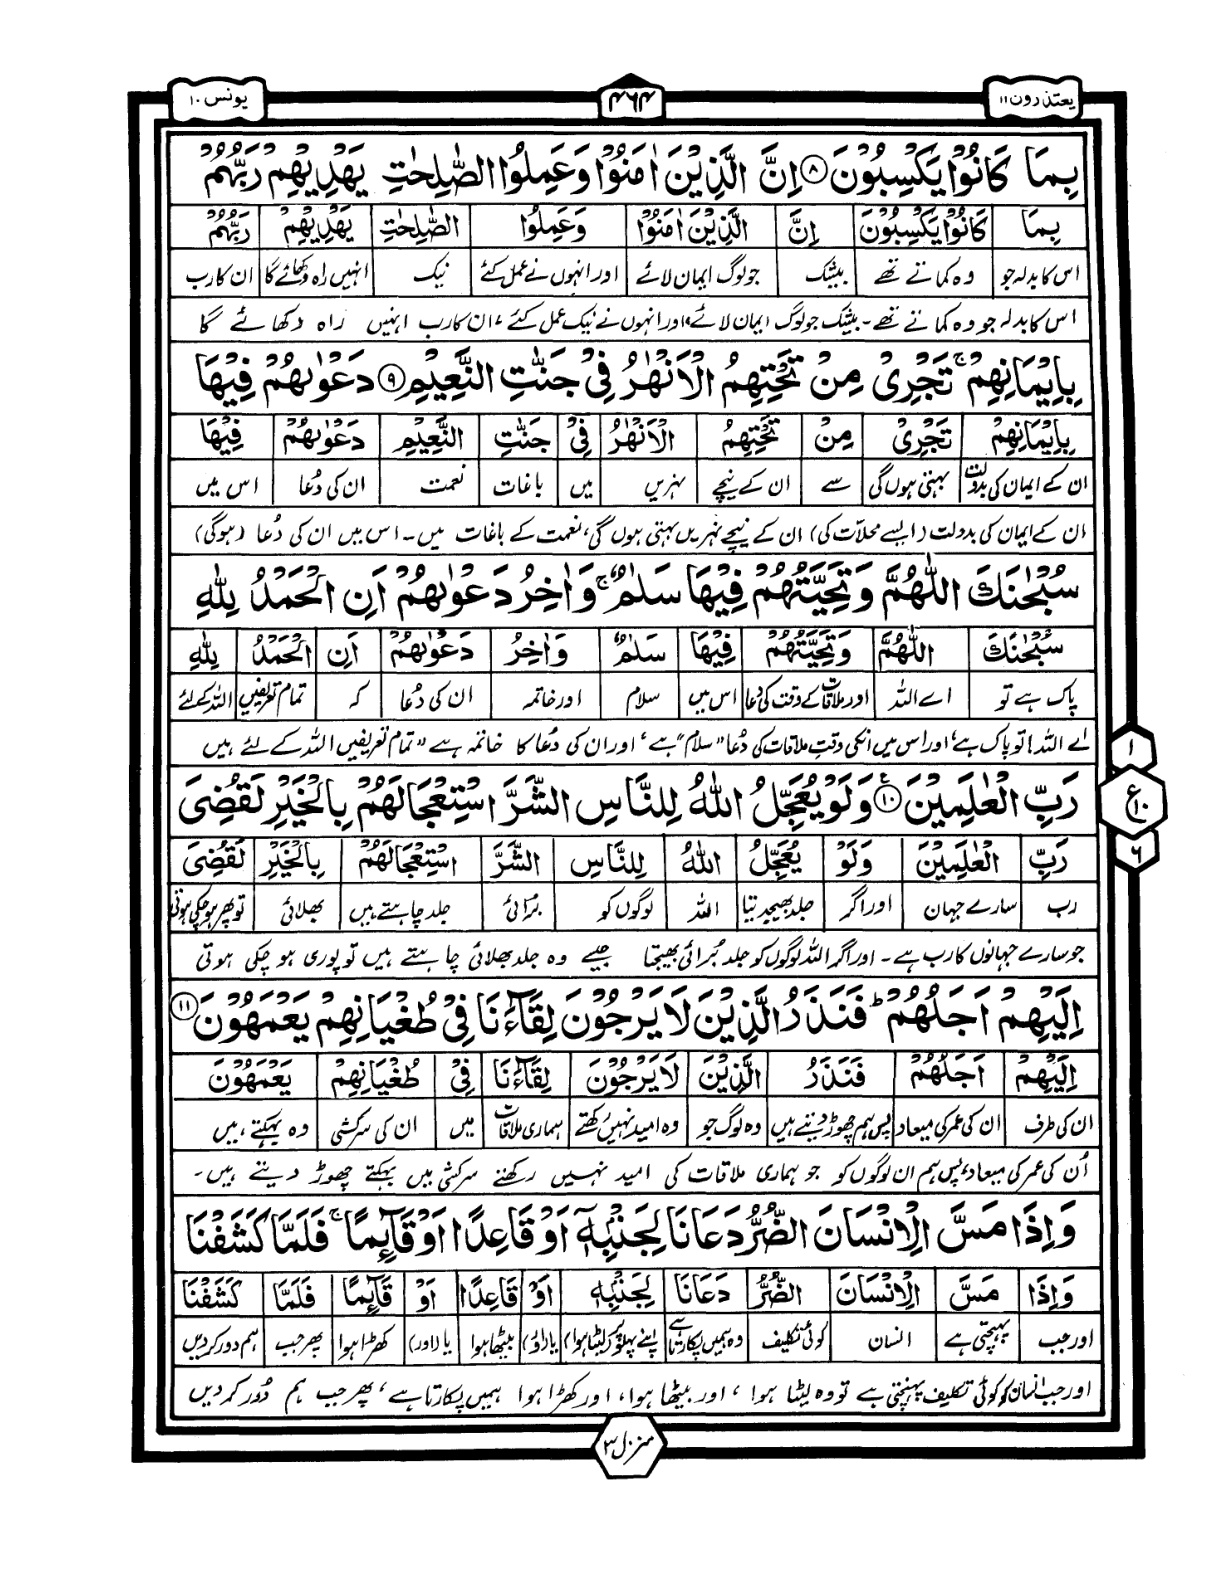 یعتذرون ۱۱
۴۶۴
یونس ۱۰
بِمَا كَانُوْا يَكْسِبُوْنَ ﴿۸﴾ اِنَّ الَّذِيْنَ اٰمَنُوْا وَعَمِلُوا الصّٰلِحٰتِ يَهْدِيْهِمْ رَبُّهُمْ
بِمَا كَانُوْا يَكْسِبُوْنَ اِنَّ الَّذِيْنَ اٰمَنُوْا وَعَمِلُوا الصّٰلِحٰتِ يَهْدِيْهِمْ رَبُّهُمْ
اس کا بدلہ جو وہ کماتے تھے بیشک جو لوگ ایمان لائے اور انہوں نے عمل کئے نیک انہیں راہ دکھائے گا ان کا رب
اس کا بدلہ جو وہ کماتے تھے۔ بیشک جو لوگ ایمان لائے، اور انہوں نے نیک عمل کئے، ان کا رب انہیں راہ دکھائے گا
بِاِيْمَانِهِمْ ۚ تَجْرِىْ مِنْ تَحْتِهِمُ الْاَنْهٰرُ فِىْ جَنّٰتِ النَّعِيْمِ ﴿۹﴾ دَعْوٰىهُمْ فِيْهَا
بِاِيْمَانِهِمْ تَجْرِىْ مِنْ تَحْتِهِمُ الْاَنْهٰرُ فِىْ جَنّٰتِ النَّعِيْمِ دَعْوٰىهُمْ فِيْهَا
ان کے ایمان کی بدولت بہتی ہوں گی سے ان کے نیچے نہریں میں باغات نعمت ان کی دُعا اس میں
ان کے ایمان کی بدولت (ایسے محلات کی) ان کے نیچے نہریں بہتی ہوں گی، نعمت کے باغات میں۔ اس میں ان کی دُعا (ہوگی)
سُبْحٰنَكَ اللّٰهُمَّ وَتَحِيَّتُهُمْ فِيْهَا سَلٰمٌ ۚ وَاٰخِرُ دَعْوٰىهُمْ اَنِ الْحَمْدُ لِلّٰهِ
سُبْحٰنَكَ اللّٰهُمَّ وَتَحِيَّتُهُمْ فِيْهَا سَلٰمٌ وَاٰخِرُ دَعْوٰىهُمْ اَنِ الْحَمْدُ لِلّٰهِ
پاک ہے تو اے اللہ اور ملاقات کے وقت کی دعا اس میں سلام اور خاتمہ ان کی دُعا کہ تمام تعریفیں اللہ کے لئے
اے اللہ! تو پاک ہے، اور اس میں انکی وقتِ ملاقات کی دُعا "سلام" ہے، اور ان کی دُعا کا خاتمہ ہے "تمام تعریفیں اللہ کے لئے ہیں
رَبِّ الْعٰلَمِيْنَ ﴿۱۰﴾ وَلَوْ يُعَجِّلُ اللّٰهُ لِلنَّاسِ الشَّرَّ اسْتِعْجَالَهُمْ بِالْخَيْرِ لَقُضِىَ
۱
ع
۱۰
۶
رَبِّ الْعٰلَمِيْنَ وَلَوْ يُعَجِّلُ اللّٰهُ لِلنَّاسِ الشَّرَّ اسْتِعْجَالَهُمْ بِالْخَيْرِ لَقُضِىَ
رب سارے جہان اور اگر جلد بھیجدیتا اللہ لوگوں کو بُرائی جلد چاہتے ہیں بھلائی تو پھر ہو چکی ہوتی
جو سارے جہانوں کا رب ہے۔ اور اگر اللہ لوگوں کو جلد بُرائی بھیجتا جیسے وہ جلد بھلائی چاہتے ہیں تو پوری ہو چکی ہوتی
اِلَيْهِمْ اَجَلُهُمْ ؕ فَنَذَرُ الَّذِيْنَ لَا يَرْجُوْنَ لِقَآءَنَا فِىْ طُغْيَانِهِمْ يَعْمَهُوْنَ ﴿۱۱﴾
اِلَيْهِمْ اَجَلُهُمْ فَنَذَرُ الَّذِيْنَ لَا يَرْجُوْنَ لِقَآءَنَا فِىْ طُغْيَانِهِمْ يَعْمَهُوْنَ
ان کی طرف ان کی عمر کی میعاد پس ہم چھوڑ دیتے ہیں وہ لوگ جو وہ امید نہیں رکھتے ہماری ملاقات میں ان کی سرکشی وہ بہکتے ہیں
اُن کی عمر کی میعاد، پس ہم ان لوگوں کو جو ہماری ملاقات کی امید نہیں رکھتے سرکشی میں بہکتے چھوڑ دیتے ہیں۔
وَاِذَا مَسَّ الْاِنْسَانَ الضُّرُّ دَعَانَا لِجَنْۢبِهٖۤ اَوْ قَاعِدًا اَوْ قَآئِمًا ۚ فَلَمَّا كَشَفْنَا
وَاِذَا مَسَّ الْاِنْسَانَ الضُّرُّ دَعَانَا لِجَنْۢبِهٖۤ اَوْ قَاعِدًا اَوْ قَآئِمًا فَلَمَّا كَشَفْنَا
اور جب پہنچتی ہے انسان کوئی تکلیف وہ ہمیں پکارتا ہے اپنے پہلو پر (لیٹا ہوا) یا (اور) بیٹھا ہوا یا (اور) کھڑا ہوا پھر جب ہم دور کر دیں
اور جب انسان کو کوئی تکلیف پہنچتی ہے تو وہ لیٹا ہوا، اور بیٹھا ہوا، اور کھڑا ہوا ہمیں پکارتا ہے، پھر جب ہم دُور کر دیں
منزل ۳